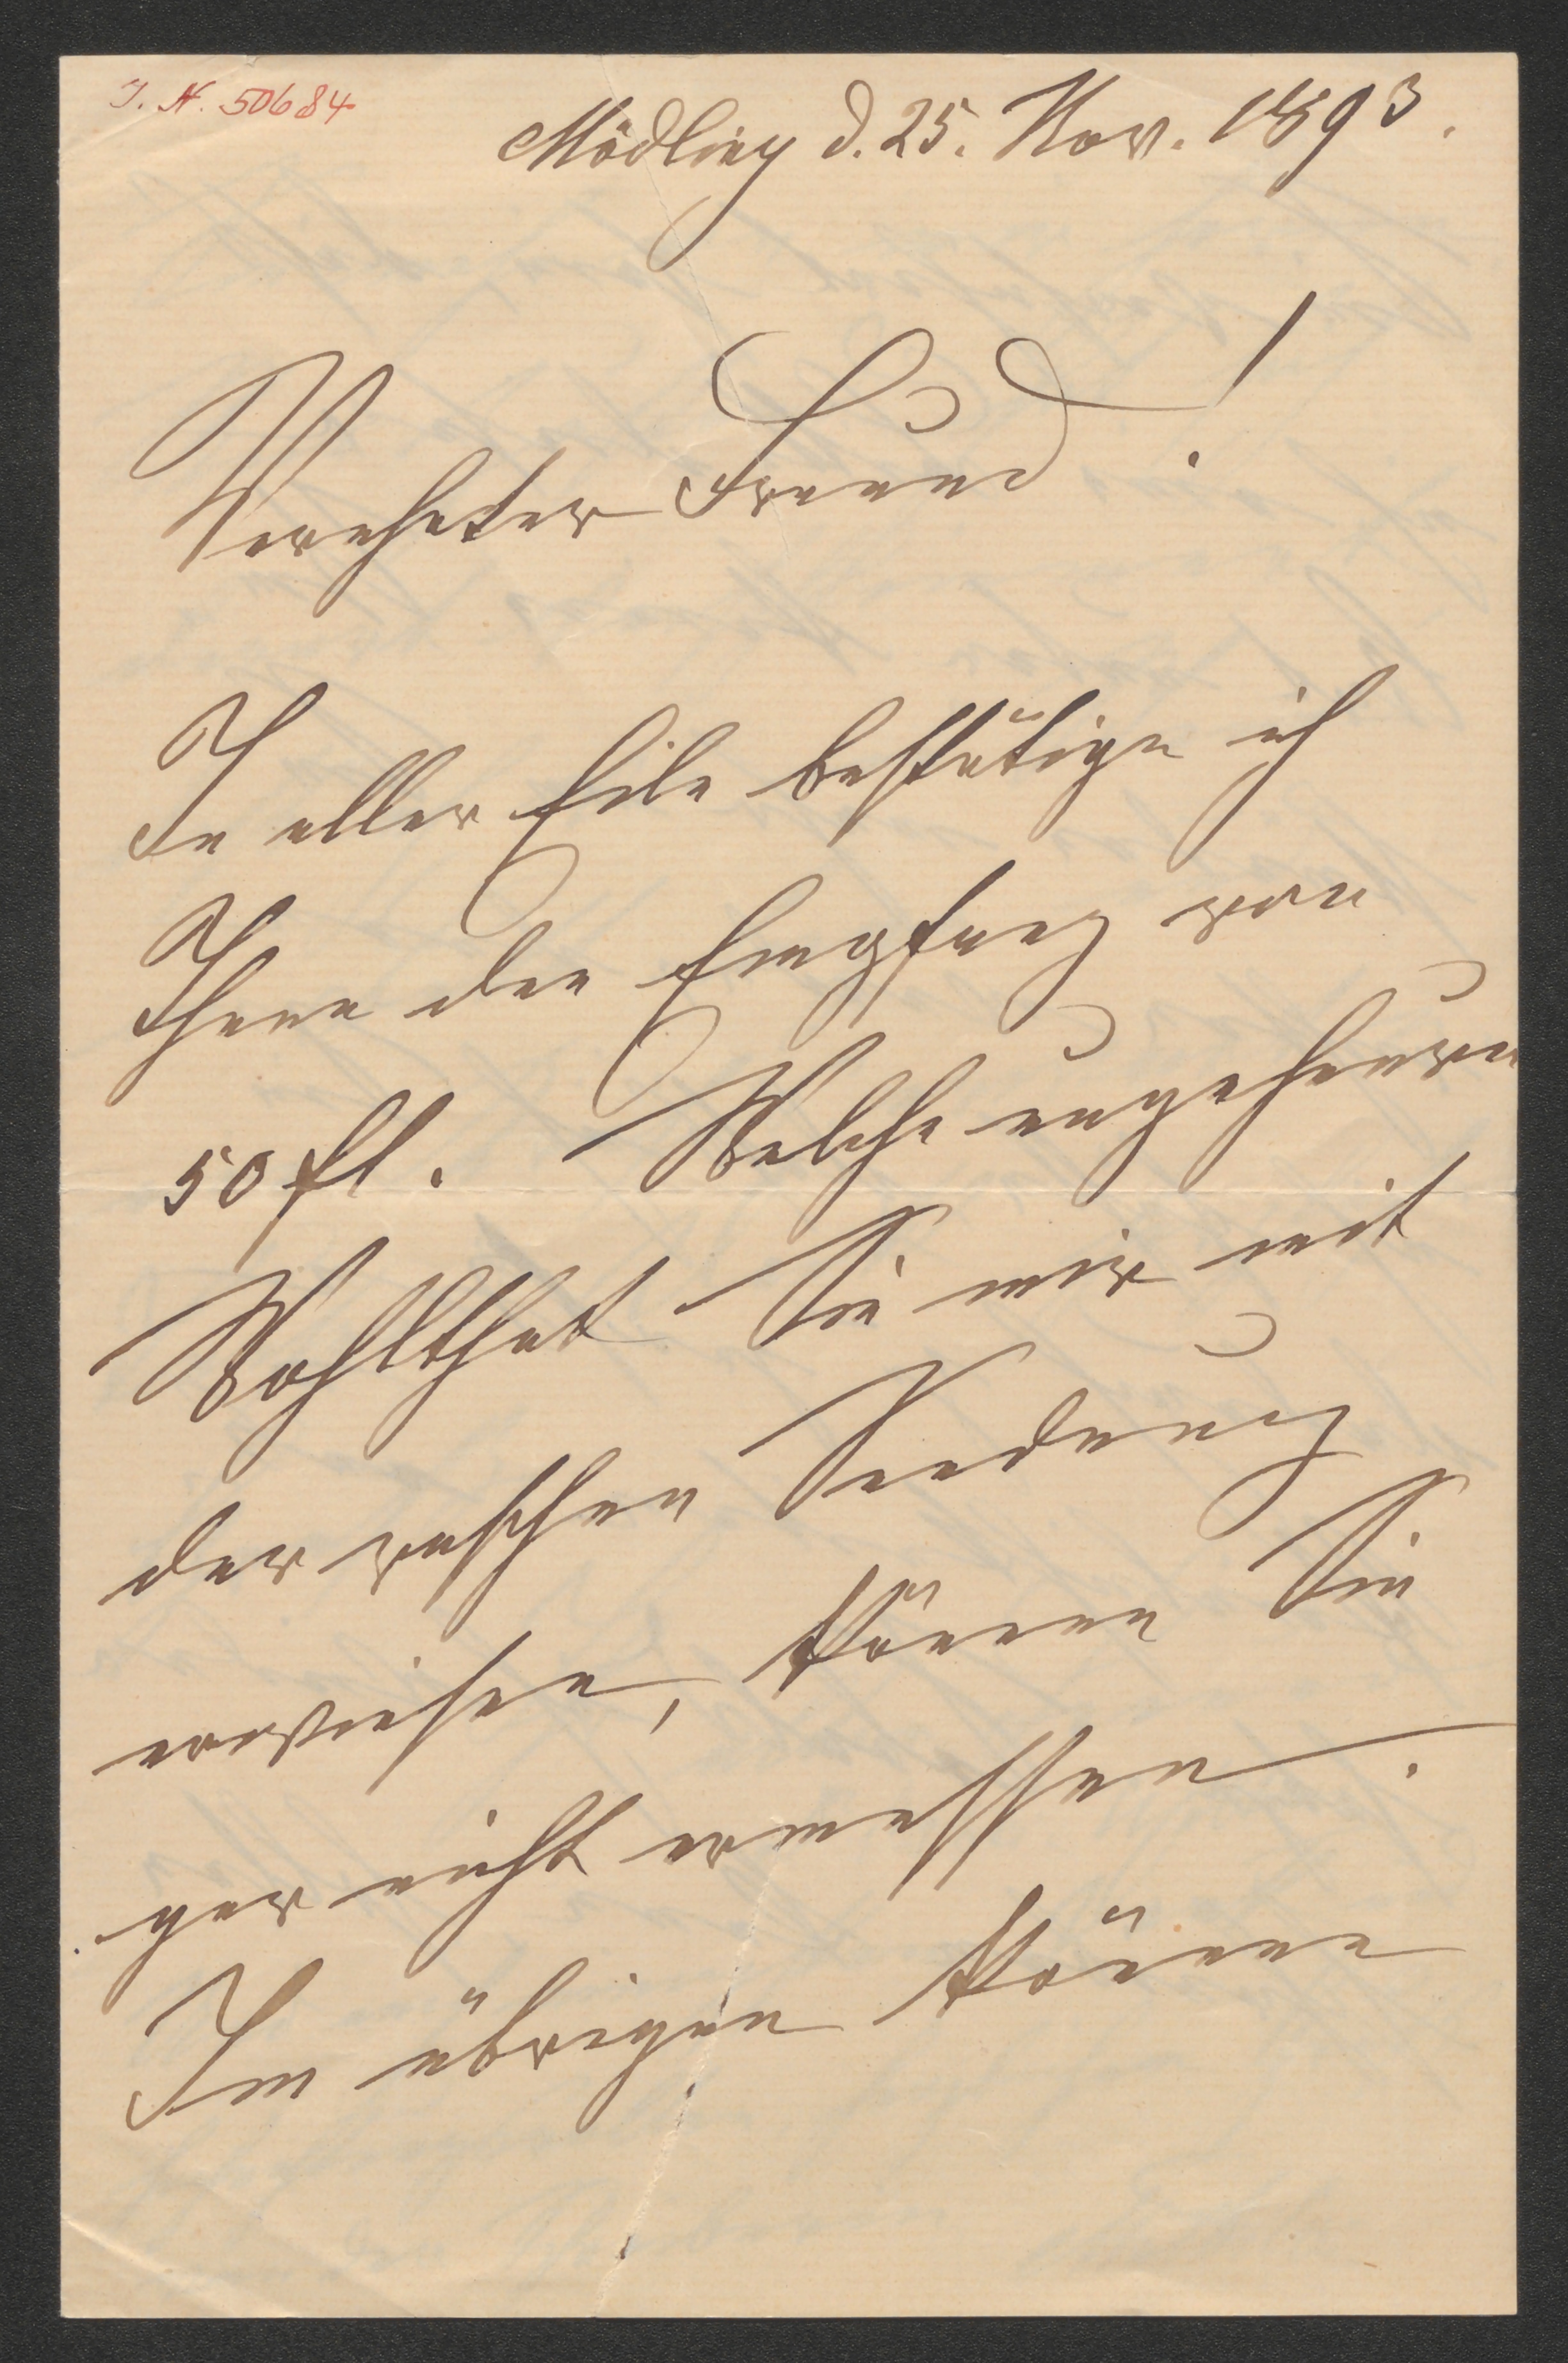 I. N. 50684
Mödling d. 25. Nov. 1893.
Verehrter Freund!
In aller Eile bestätige ich
Ihnen den Empfang von
50 fl. Welche ungeheure
Wohlthat Sie mir mit
der raschen Sendung
erwiesen, können Sie
gar nicht ermessen.
Im übrigen können